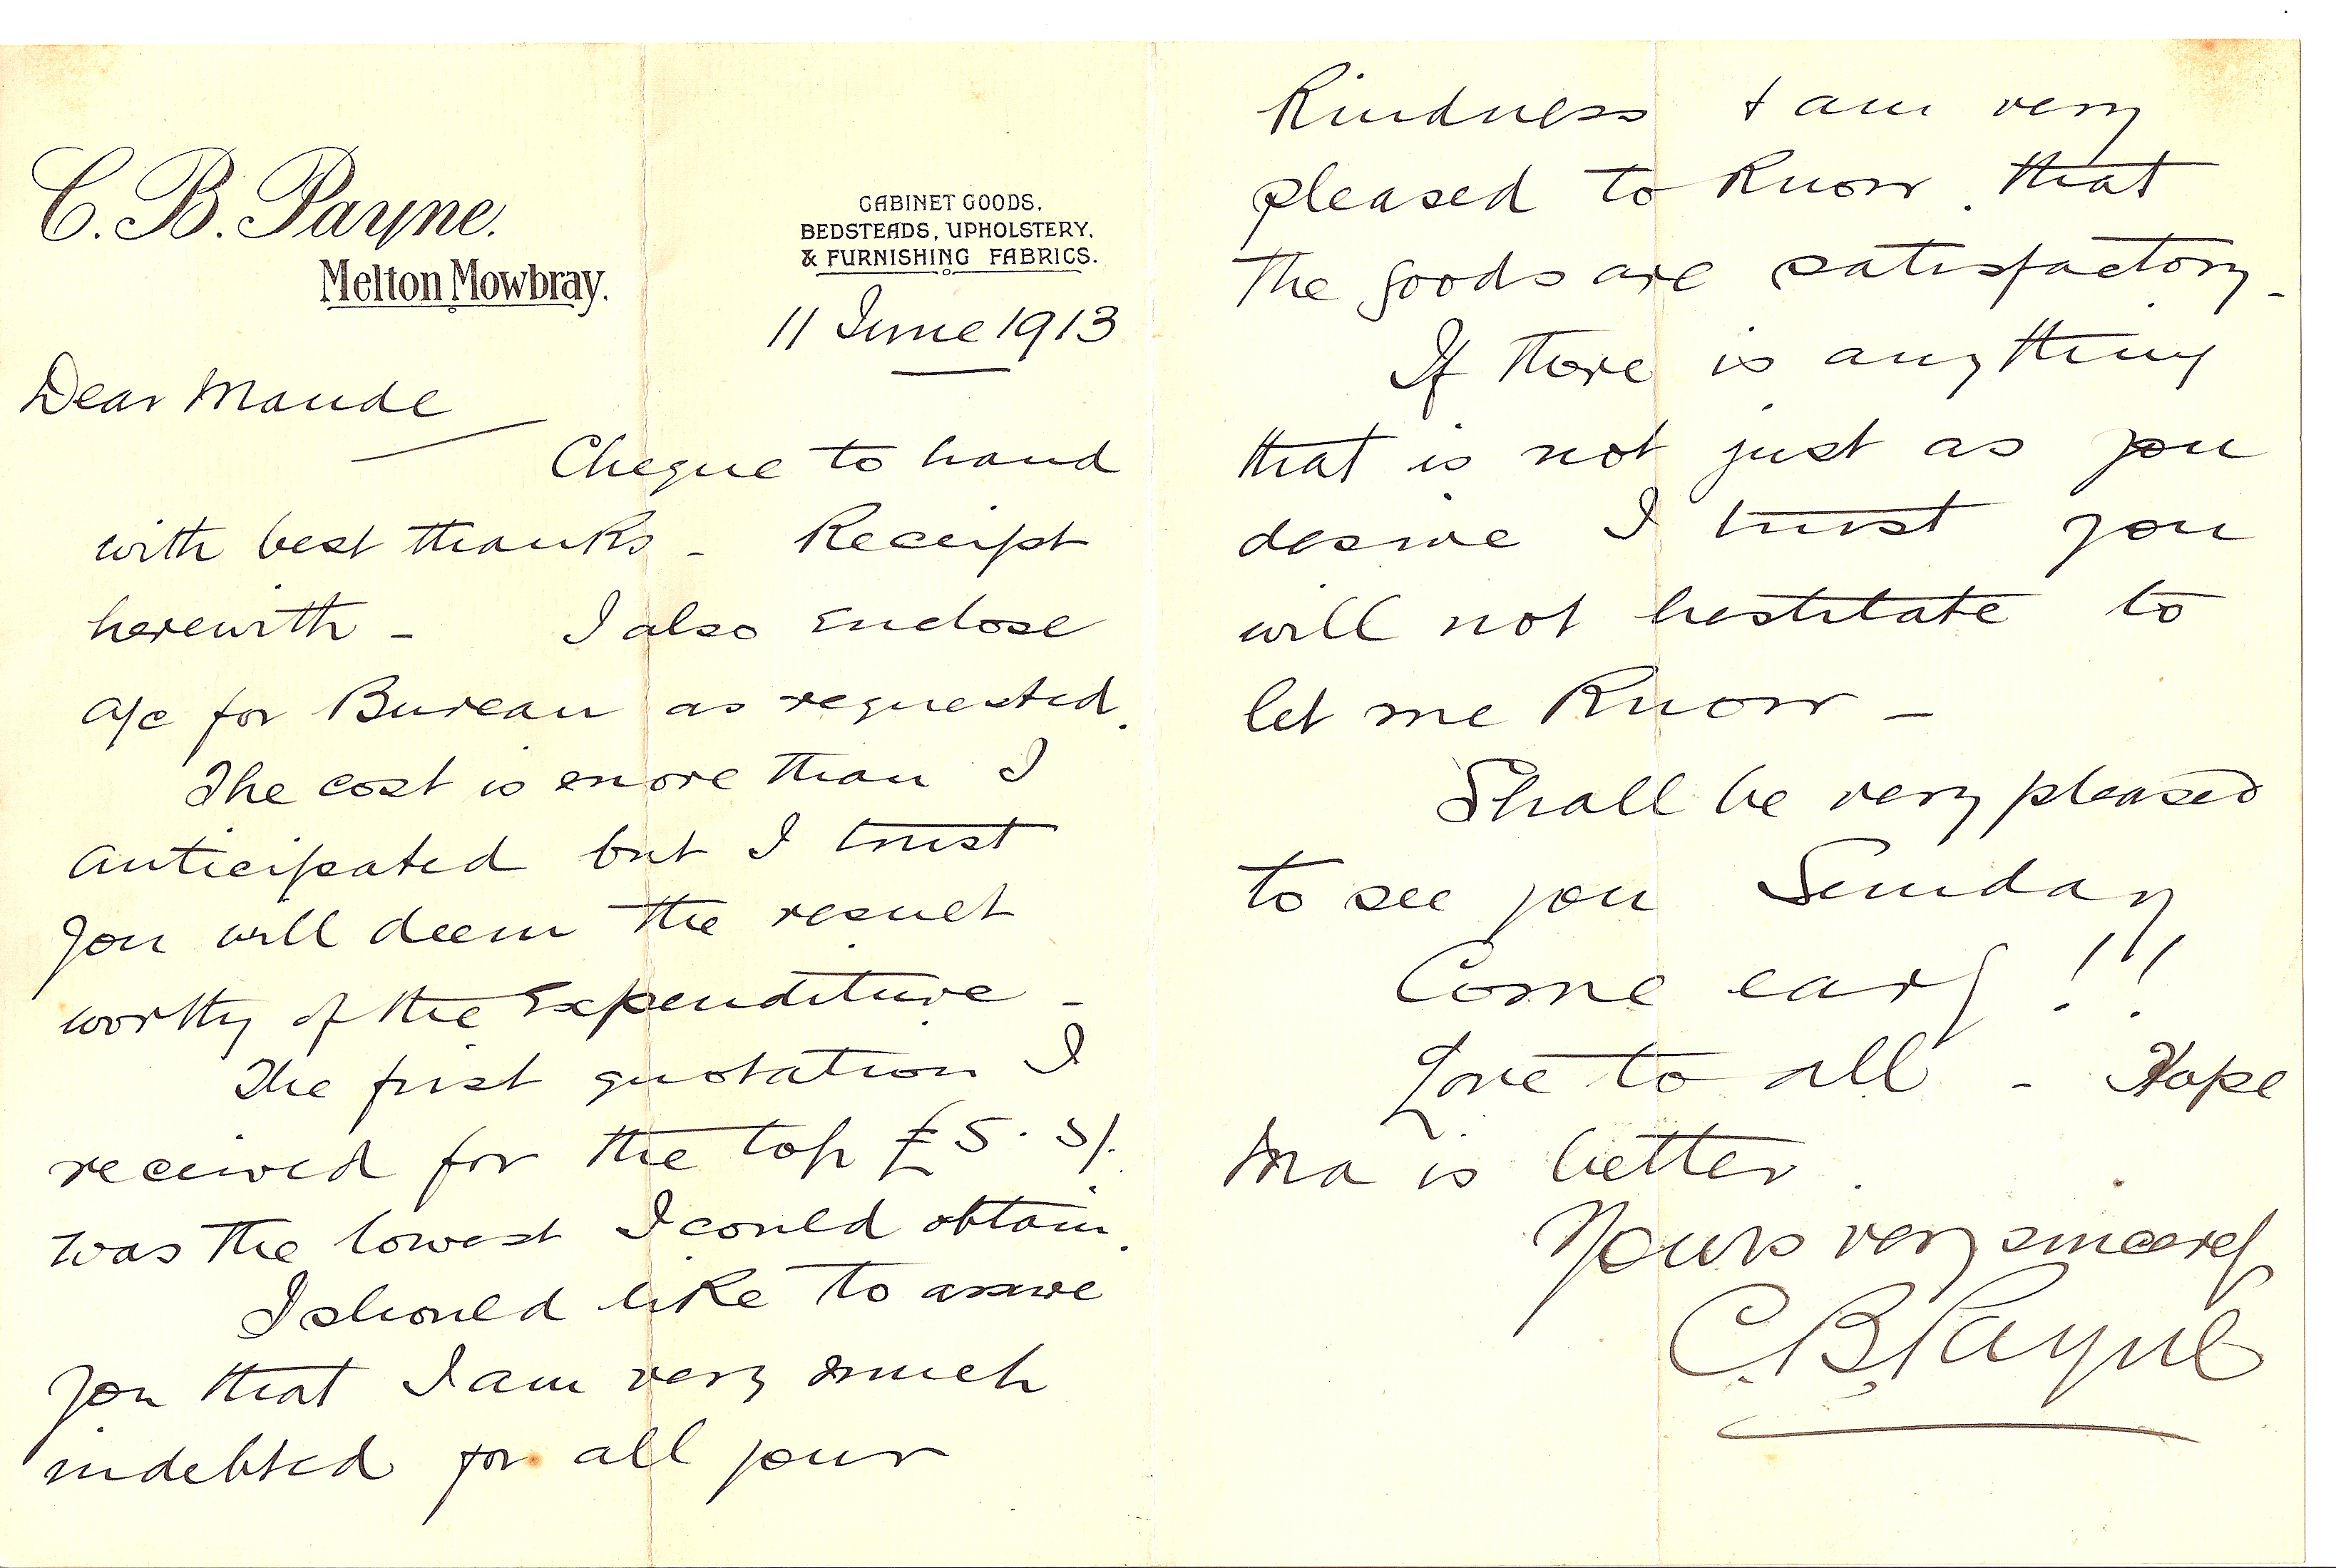 C. B. Payne.
Melton Mowbray.
CABINET GOODS.
BEDSTEADS, UPHOLSTERY,
& FURNISHING FABRICS.
11 June 1913
Dear Maude
Cheque to hand
with best thanks - Receipt
herewith - I also enclose
a/c for Bureau as requested.
The cost is more than I
anticipated but I trust
you will deem the result
worthy of the expenditure -
The first quotation I
received for the top £5. 5/.
was the lowest I could obtain.
I should like to assure
you that I am very much
indebted for all your
Kindness & am very
pleased to know. that
the goods are satisfactory -
If there is any thing
that is not just as you
desire I trust you
will not hestitate to
let me know -
Shall be very pleased
to see you Sunday
Come early !!
Love to all - Hope
Ma is better.
Yours very sincerely
C. B. Payne